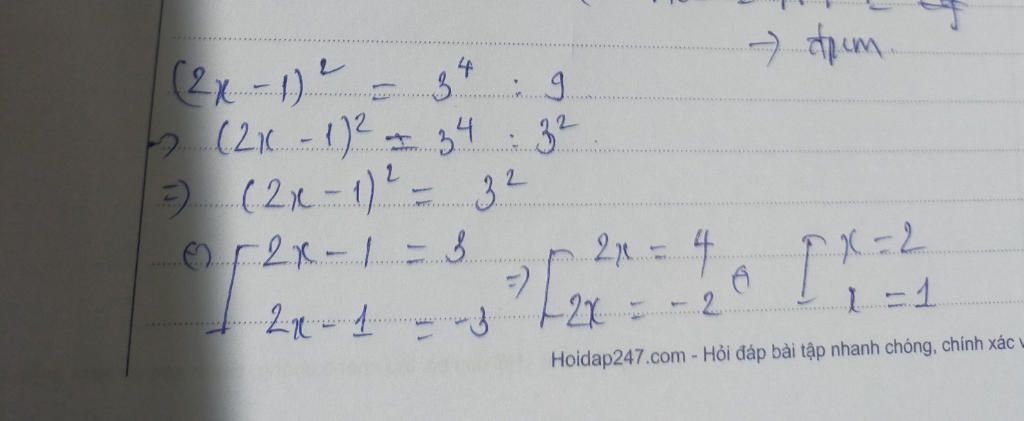 → đpcm.
(2x - 1)² = 3⁴ : 9
→ (2x - 1)² = 3⁴ : 3²
⇒ (2x - 1)² = 3²
⇔ [ 2x - 1 = 3 ⇒ [ 2x = 4 ⇔ [ x = 2
2x - 1 = -3 2x = -2 x = 1
Hoidap247.com - Hỏi đáp bài tập nhanh chóng, chính xác